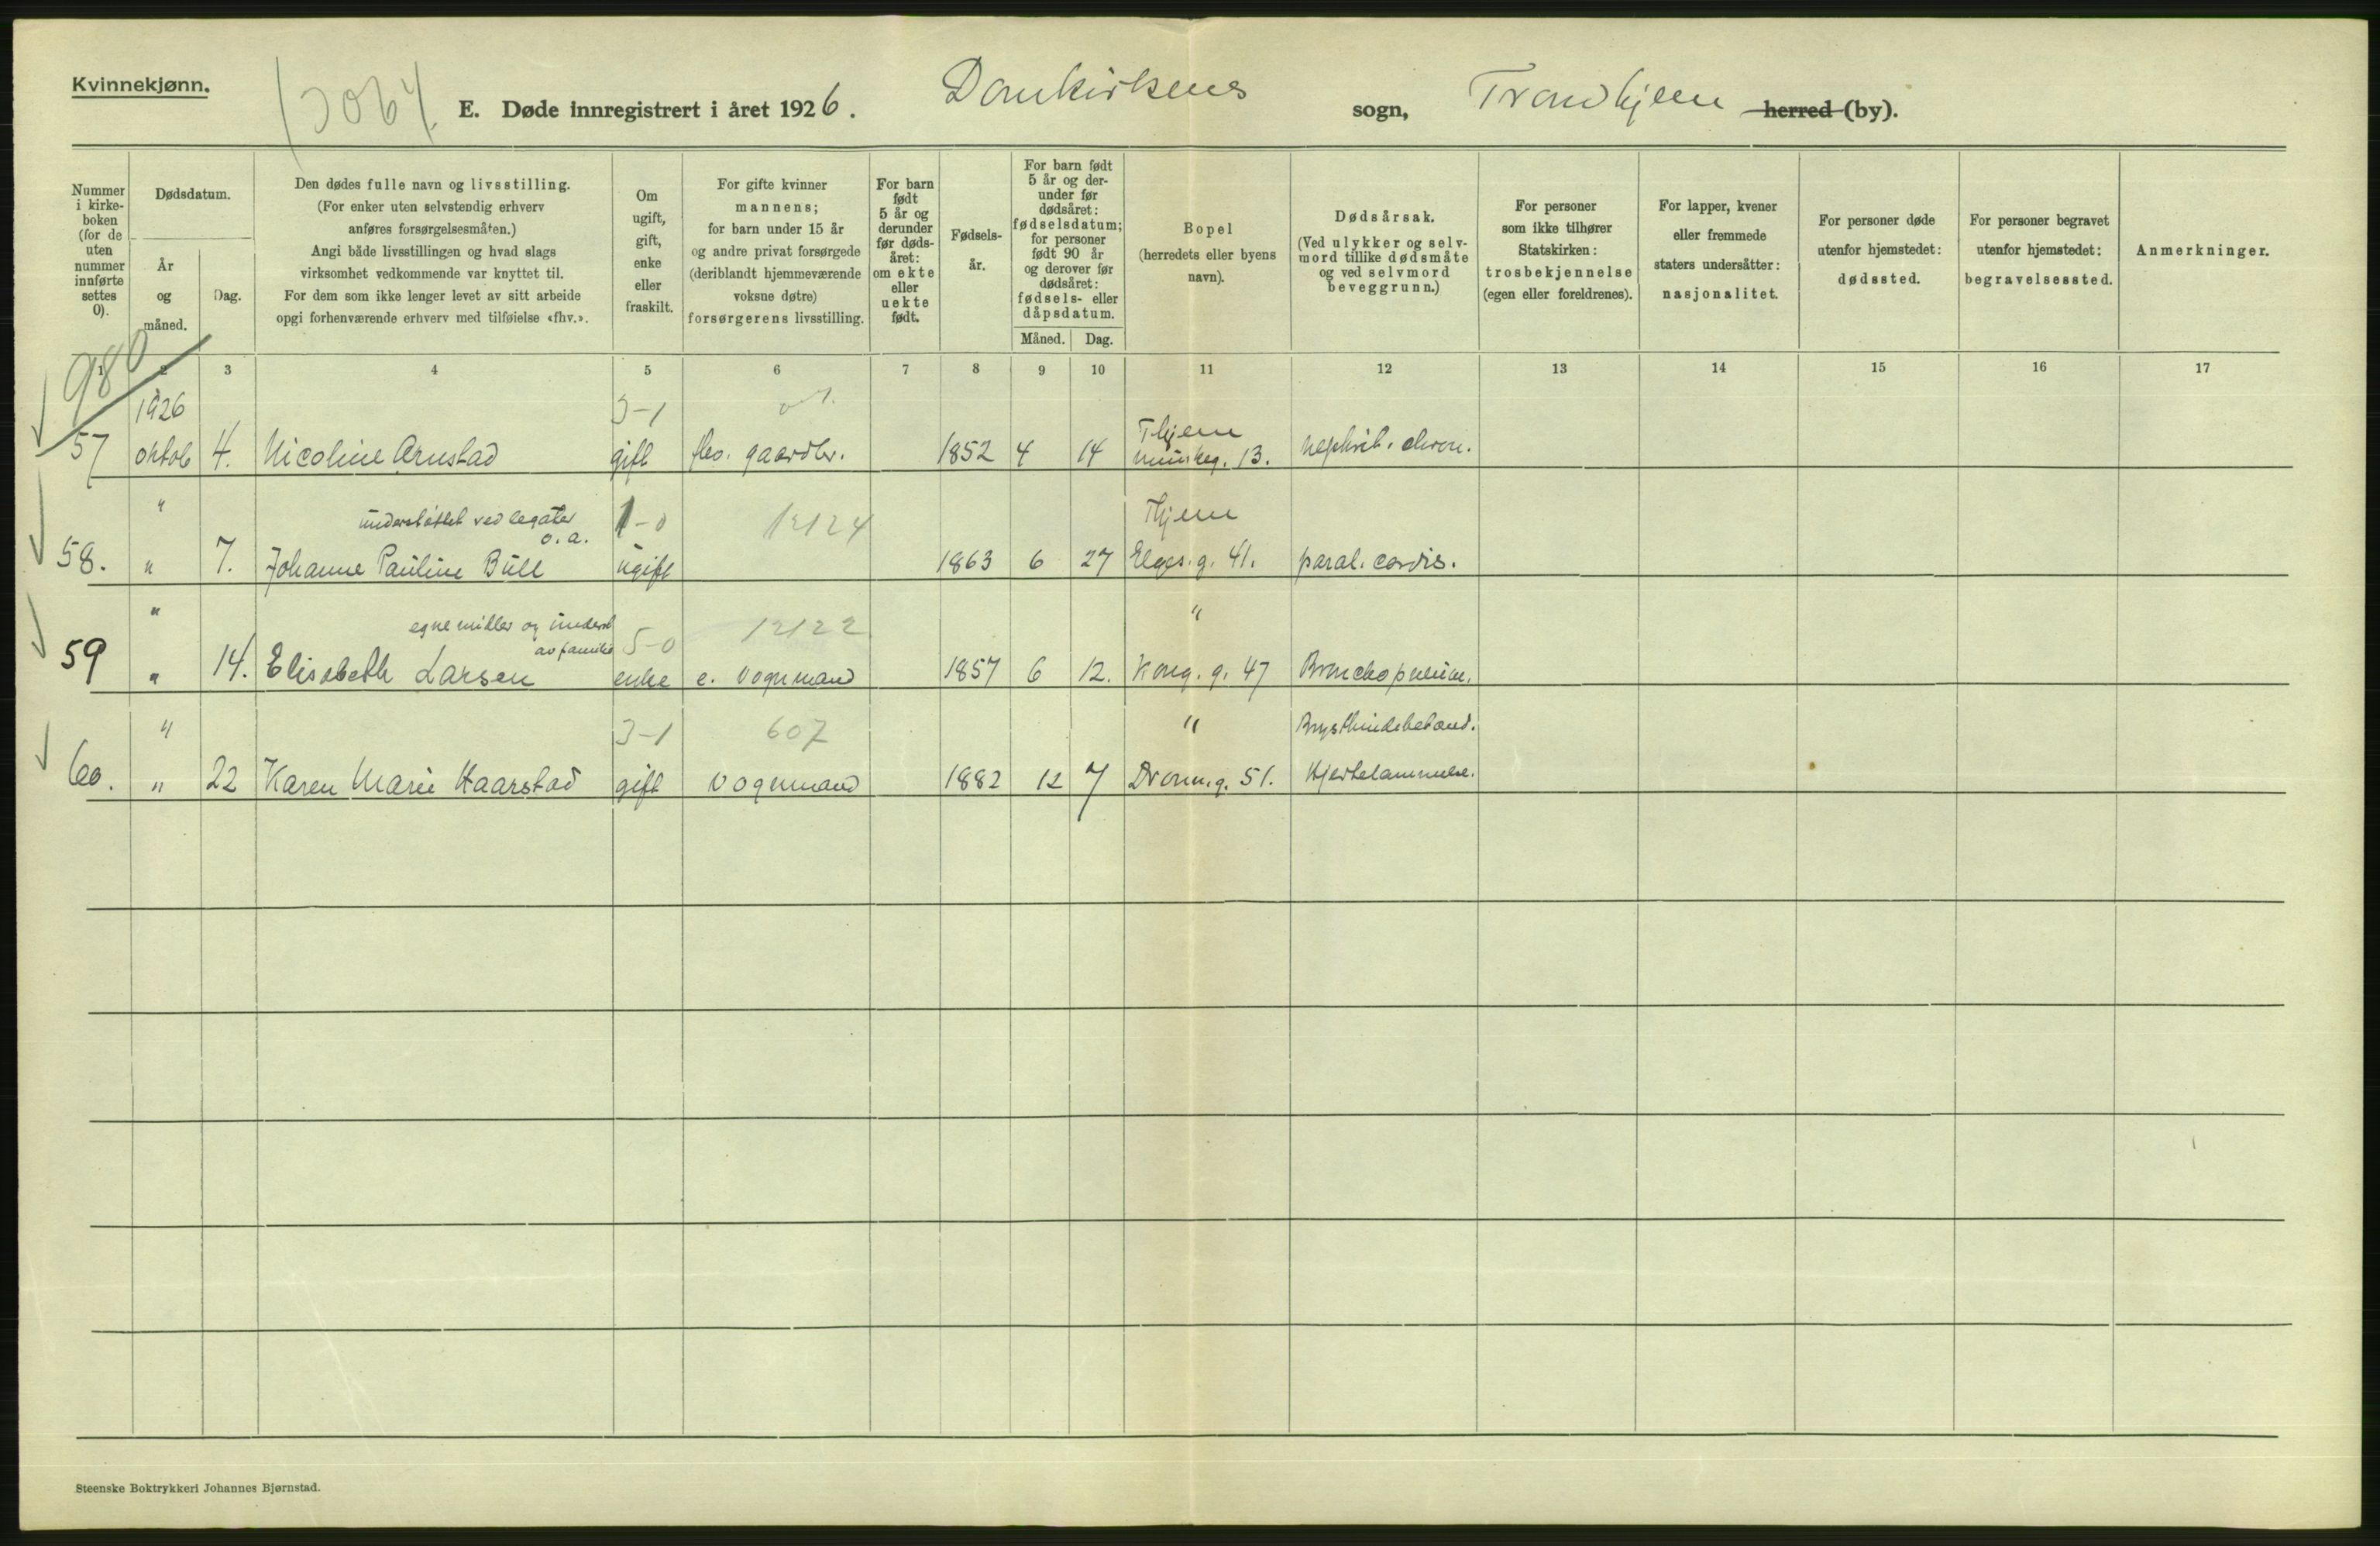 Kvinnekjønn.
E. Døde innregistrert i året 1926. Domkirkens sogn, Trondhjem herred (by).
Nummer i kirke- boken (for de uten nummer innførte settes 0).
Dødsdatum.
År og måned.
Dag.
Den dødes fulle navn og livsstilling.
(For enker uten selvstendig erhverv
anføres forsørgelsesmåten.)
Angi både livsstillingen og hvad slags
virksomhet vedkommende var knyttet til.
For dem som ikke lenger levet av sitt arbeide
opgi forhenværende erhverv med tilføielse «fhv.».
Om ugift, gift, enke eller fraskilt.
For gifte kvinner
mannens;
for barn under 15 år
og andre privat forsørgede
(deriblandt hjemmeværende
voksne døtre)
forsørgerens livsstilling.
For barn født 5 år og derunder før døds- året: om ekte eller uekte født.
Fødsels- år.
For barn født 5 år og der- under før dødsåret: fødselsdatum; for personer født 90 år og derover før dødsåret: fødsels- eller dåpsdatum.
Måned.
Dag.
Bopel
(herredets eller byens
navn).
Dødsårsak.
(Ved ulykker og selv-
mord tillike dødsmåte
og ved selvmord
beveggrunn.)
For personer
som ikke tilhører
Statskirken:
trosbekjennelse
(egen eller foreldrenes).
For lapper, kvener
eller fremmede
staters undersåtter:
nasjonalitet.
For personer døde
utenfor hjemstedet:
dødssted.
For personer begravet
utenfor hjemstedet:
begravelsessted.
Anmerkninger.
1 2 3 4 5 6 7 8 9 10 11 12 13 14 15 16 17
980
1926 3-1 Thjem
57 oktob 4. Nicoline Arnstad gift gaardbr. 1852 4 14 Munkeg. 13. nephrit. chron.
" understøttet ved legater o.a. 1-0 12124 Thjem
58. " 7. Johanne Pauline Bull ugift 1863 6 27 41. paral. cordis.
" egne midler og underst av familie 5-0 12122 "
59 " 14. Elisabeth Larsen enke e. vognmand 1857 6 12. Kong. g. 47 Bronchopneum.
" 3-1 607 " Brysthindebetænd.
60. " 22 Karen Marie Haarstad gift vognmand 1882 12 7 Dronn.g. 51. Hjertelammelse.
Steenske Boktrykkeri Johannes Bjørnstad.